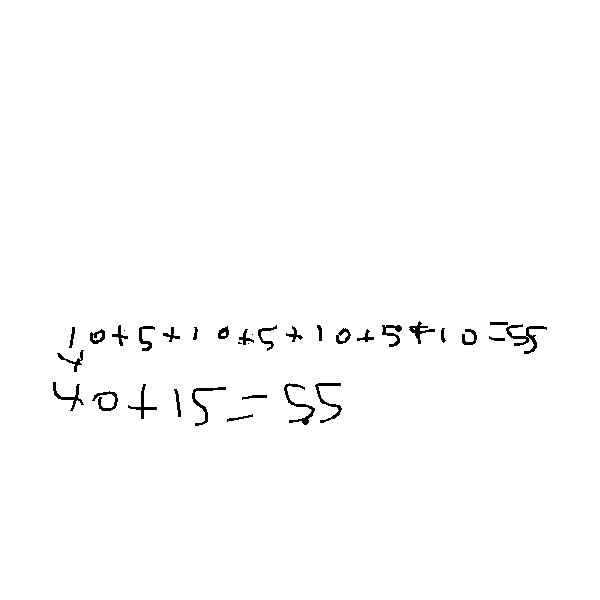 10+5+10+5+10+5+10=55
4
40+15=55